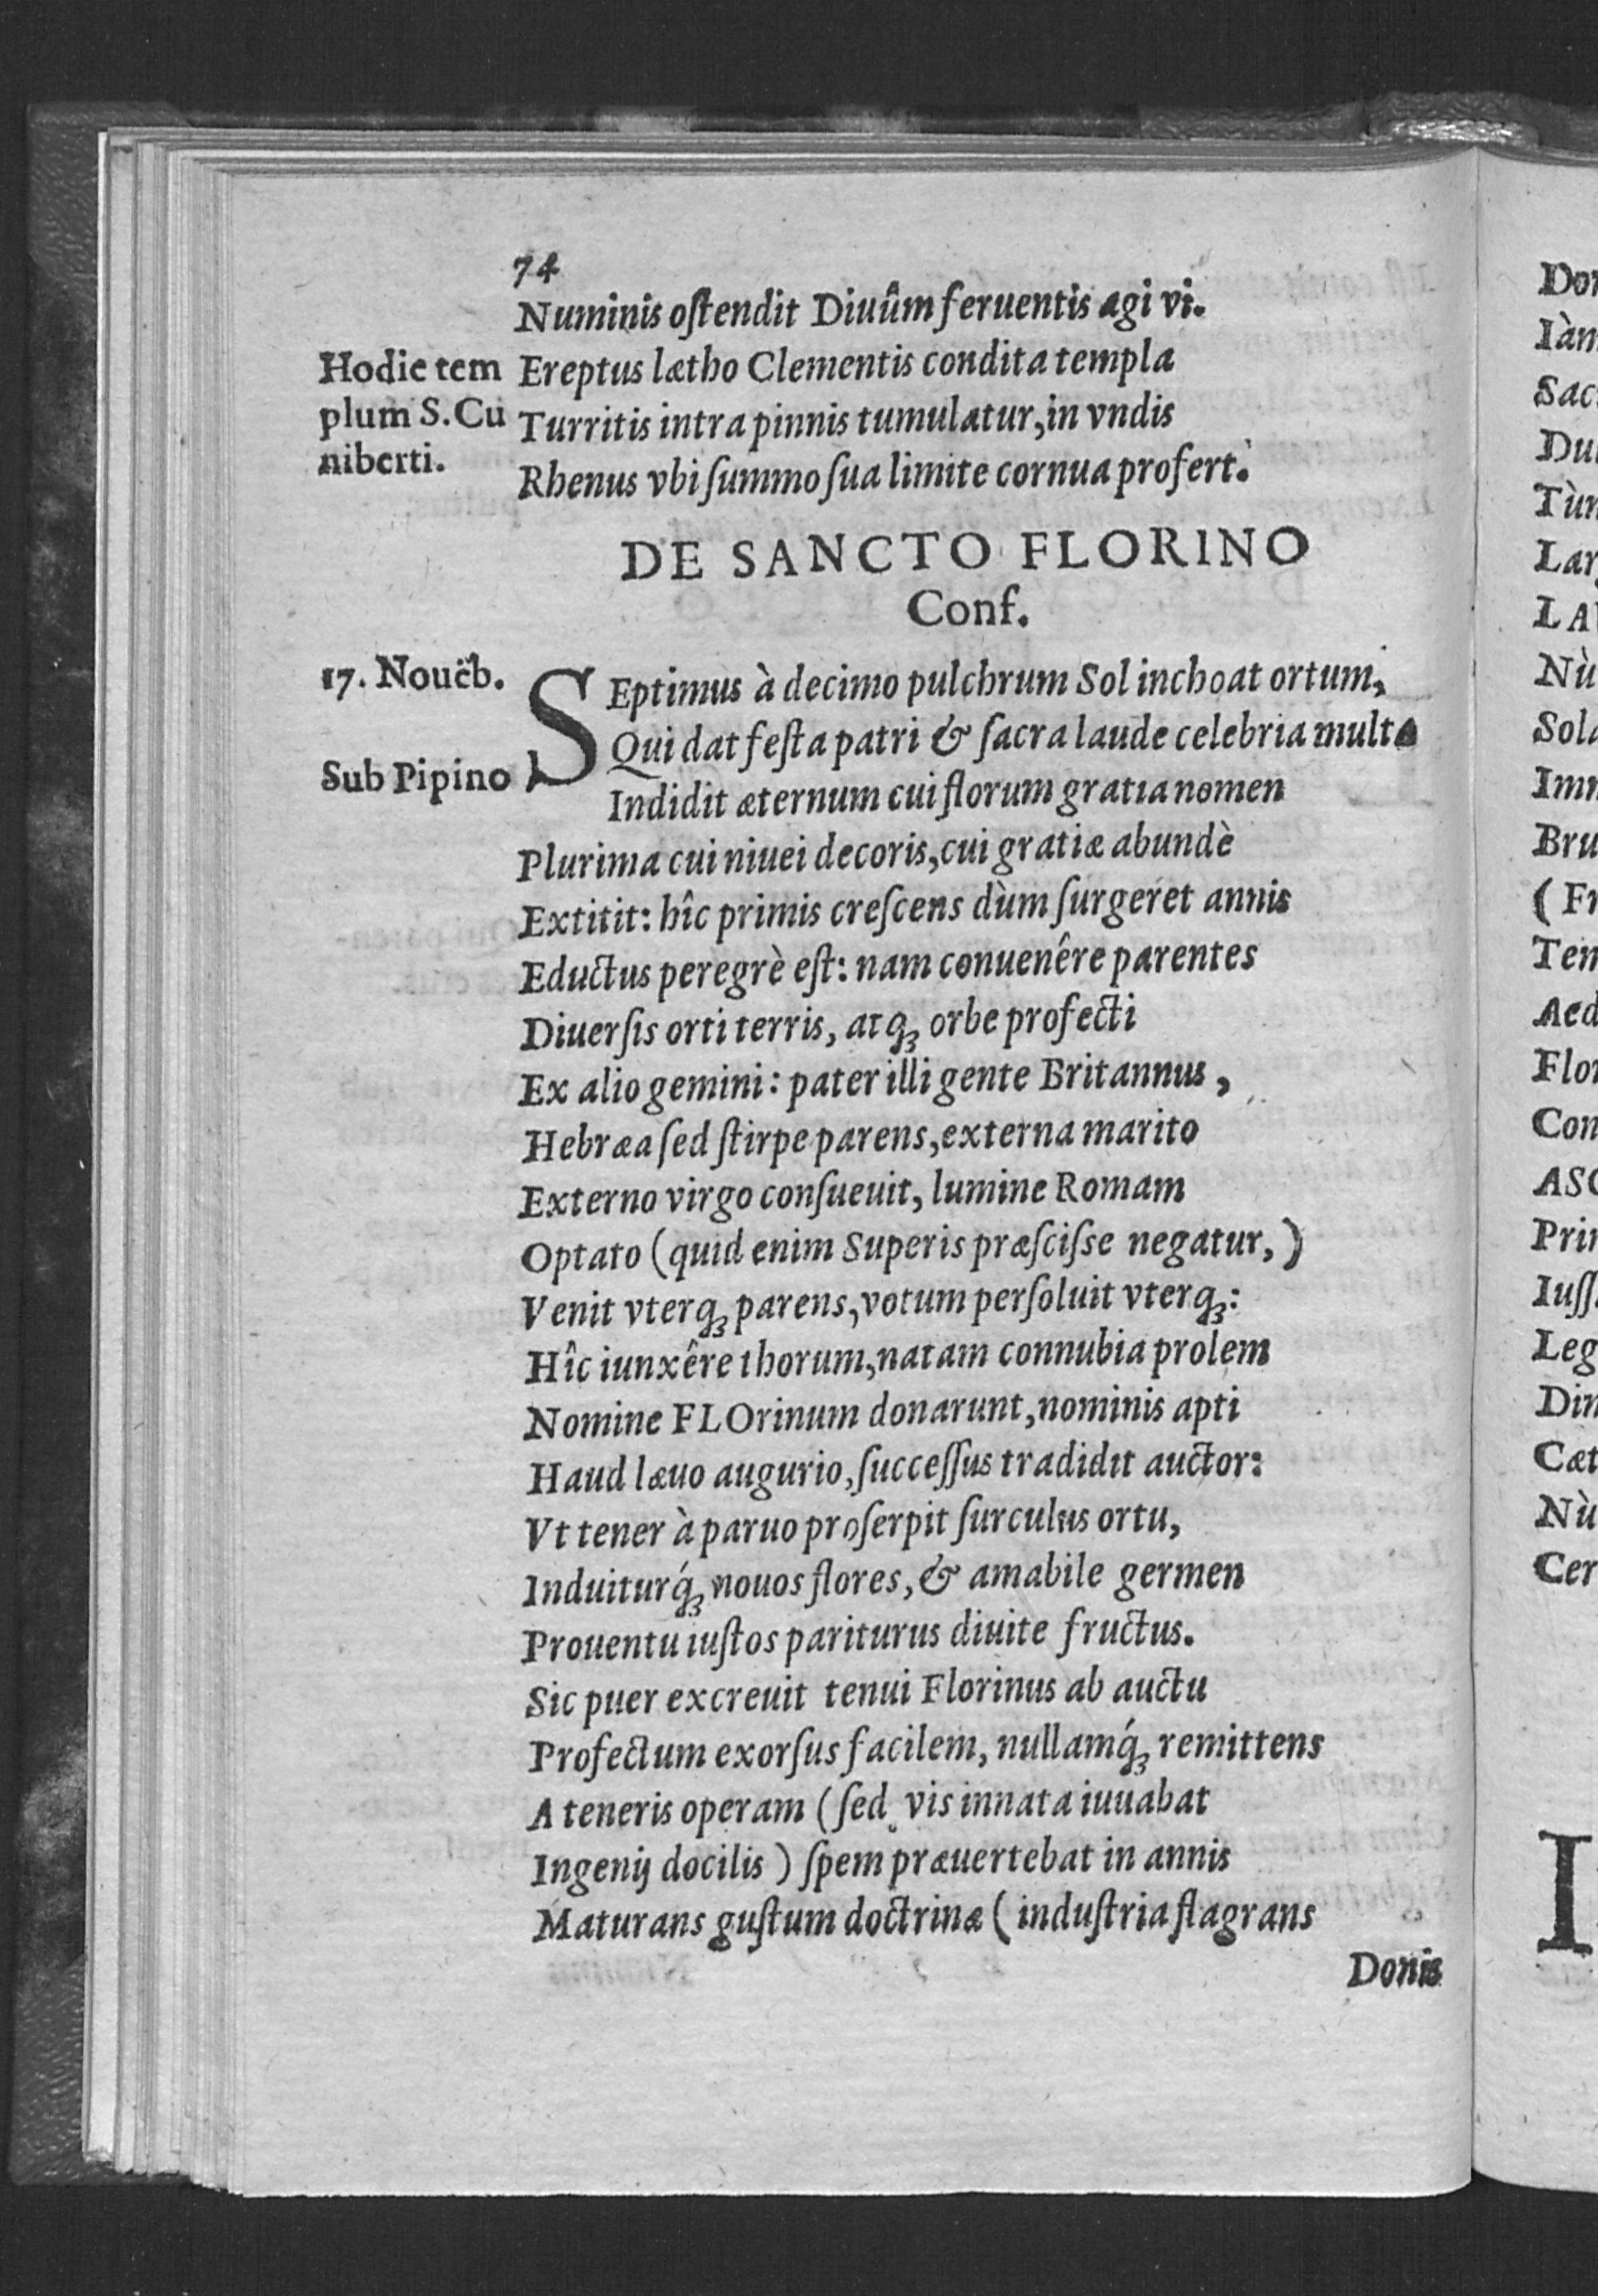 74
Numinis oſtendit Diuûm feruentis agi vi.
Hodie tem
plum S. Cu
niberti.
Ereptus lætho Clementis condita templa
Turritis intra pinnis tumulatur, in vndis
Rhenus vbi ſummo ſua limite cornua profert.
DE SANCTO FLORINO
Conf.
17. Nouēb.
Sub Pipino
SEptimus à decimo pulchrum Sol inchoat ortum,
Qui dat feſta patri & ſacra laude celebria multa
Indidit æternum cui florum gratia nomen
Plurima cui niuei decoris, cui gratiæ abundè
Extitit: hîc primis creſcens dùm ſurgeret annis
Eductus peregrè eſt: nam conuenêre parentes
Diuerſis orti terris, atq; orbe profecti
Ex alio gemini: pater illi gente Britannus,
Hebræa ſed ſtirpe parens, externa marito
Externo virgo conſueuit, lumine Romam
Optato (quid enim Superis præſciſse negatur,)
Venit vterq; parens, votum perſoluit vterq;:
Hîc iunxêre thorum, natam connubia prolem
Nomine FLOrinum donarunt, nominis apti
Haud læuo augurio, ſucceſſus tradidit auctor:
Vt tener à paruo proſerpit ſurculus ortu,
Induiturq́; nouos flores, & amabile germen
Prouentu iuſtos pariturus diuite fructus.
Sic puer excreuit tenui Florinus ab auctu
Profectum exorſus facilem, nullamq́; remittens
A teneris operam (ſed vis innata iuuabat
Ingenij docilis) ſpem præuertebat in annis
Maturans guſtum doctrinæ (induſtria flagrans
Donis
Iàm
Tùm
Nù
Sola
Bru
(Fr
Tem
Aed
Flor
Con
ASC
Prim
Iuſſ
Leg
Cæt
Nù
Cer
I